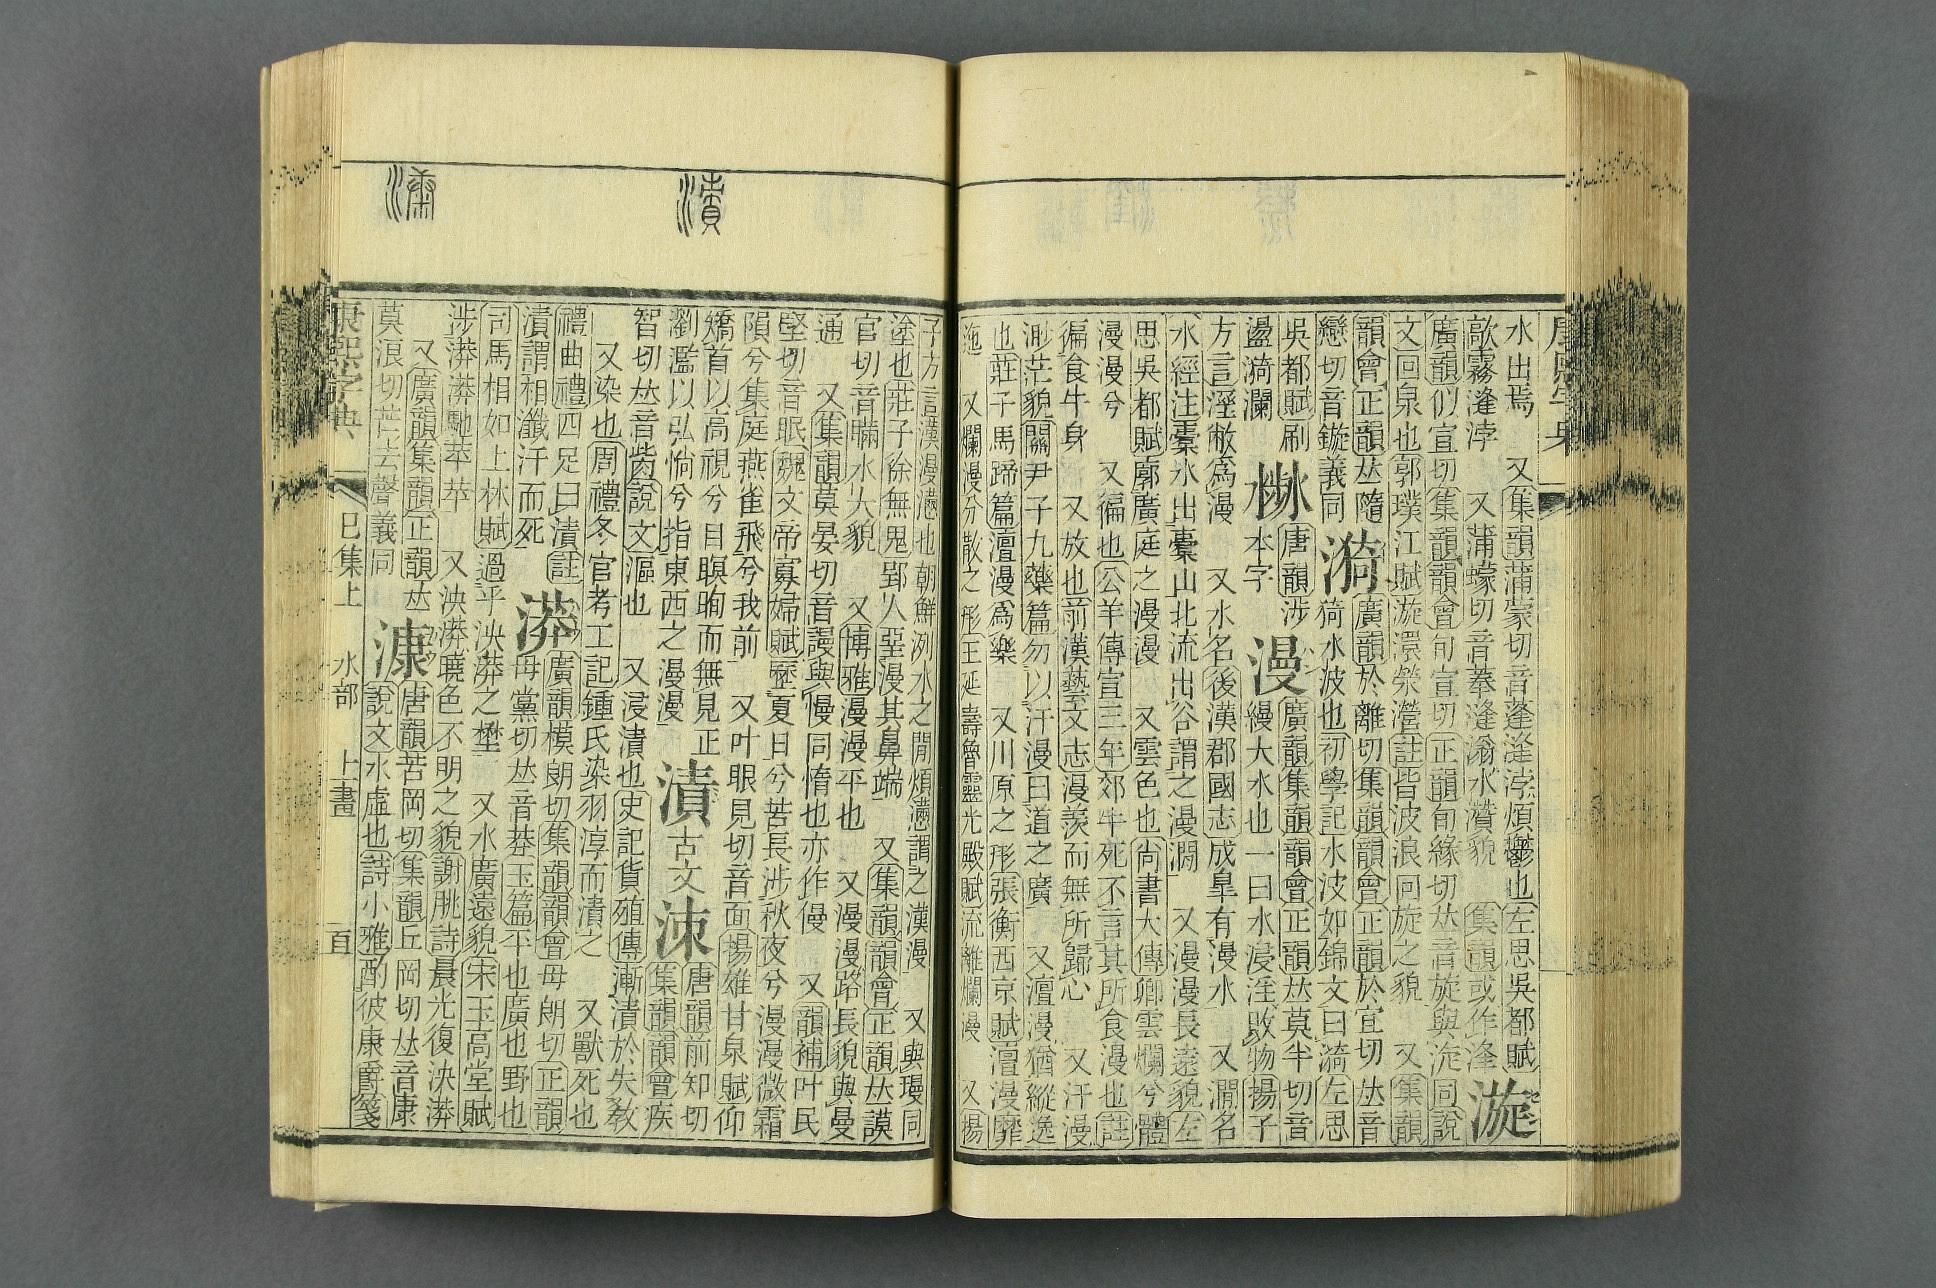 水出焉 又集韻蒲蒙切音蓬漨浡煩鬱也左思吳都賦
歊霧漨浡 又蒲蠓切音菶漨滃水瀵貌 集韻或作浲 漩
廣韻似宣切集韻韻會旬宣切正韻旬緣切𠀤音旋與淀同說
文回泉也郭璞江賦漩澴滎瀯註皆波浪回旋之貌 又集韻
韻會正韻𠀤隨
戀切音鏇義同 漪 廣韻於離切集韻韻會正韻於宜切𠀤音
猗水波也初學記水波如錦文曰漪左思
吳都賦刷
盪漪瀾 㵘 唐韻涉
本字 漫 廣韻集韻韻會正韻𠀤莫半切音
縵大水也一曰水浸淫敗物揚子
方言溼敝爲漫 又水名後漢郡國志成臯有漫水 又澗名
水經注橐水出橐山北流出谷謂之漫澗 又漫漫長遠貌左
思吳都賦廓廣庭之漫漫 又雲色也尚書大傳卿雲爛兮體
漫漫兮 又徧也公羊傳宣三年郊牛死不言其所食漫也註
徧食牛身 又放也前漢藝文志漫羨而無所歸心 又汗漫
渺茫貌關尹子九藥篇勿以汗漫曰道之廣 又澶漫猶縱逸
也莊子馬蹄篇澶漫爲樂 又川原之形張衡西京賦澶漫靡
迤 又爛漫分散之形王延壽魯靈光殿賦流離爛漫 又揚
子方言漢漫懣也朝鮮洌水之閒煩懣謂之漢漫 又與墁同
塗也莊子徐無鬼郢人堊漫其鼻端 又集韻韻會正韻𠀤謨
官切音瞞水大貌 又博雅漫漫平也 又漫漫路長貌與曼
通 又集韻莫晏切音謾與慢同惰也亦作僈 又韻補叶民
堅切音眠魏文帝寡婦賦歷夏日兮苦長涉秋夜兮漫漫微霜
隕兮集庭燕雀飛兮我前 又叶眼見切音面揚雄甘泉賦仰
矯首以高視兮目瞑眴而無見正
瀏濫以弘惝兮指東西之漫漫 漬 古文㳍 唐韻前知切
集韻韻會疾
智切𠀤音眥說文漚也 又浸漬也史記貨殖傳漸漬於失敎
又染也周禮冬官考工記鍾氏染羽淳而漬之 又獸死也
禮曲禮四足曰漬註
漬謂相瀸汗而死 漭 廣韻模朗切集韻韻會母朗切正韻
母黨切𠀤音莽玉篇平也廣也野也
司馬相如上林賦過乎泱漭之壄 又水廣遠貌宋玉高堂賦
涉漭漭馳苹苹 又泱漭曉色不明之貌謝朓詩晨光復泱漭
又廣韻集韻正韻𠀤
莫浪切茫去聲義同 漮 唐韻苦岡切集韻丘岡切𠀤音康
說文水虛也詩小雅酌彼康爵箋
康熙字典 巳集上 水部 十一畫 百